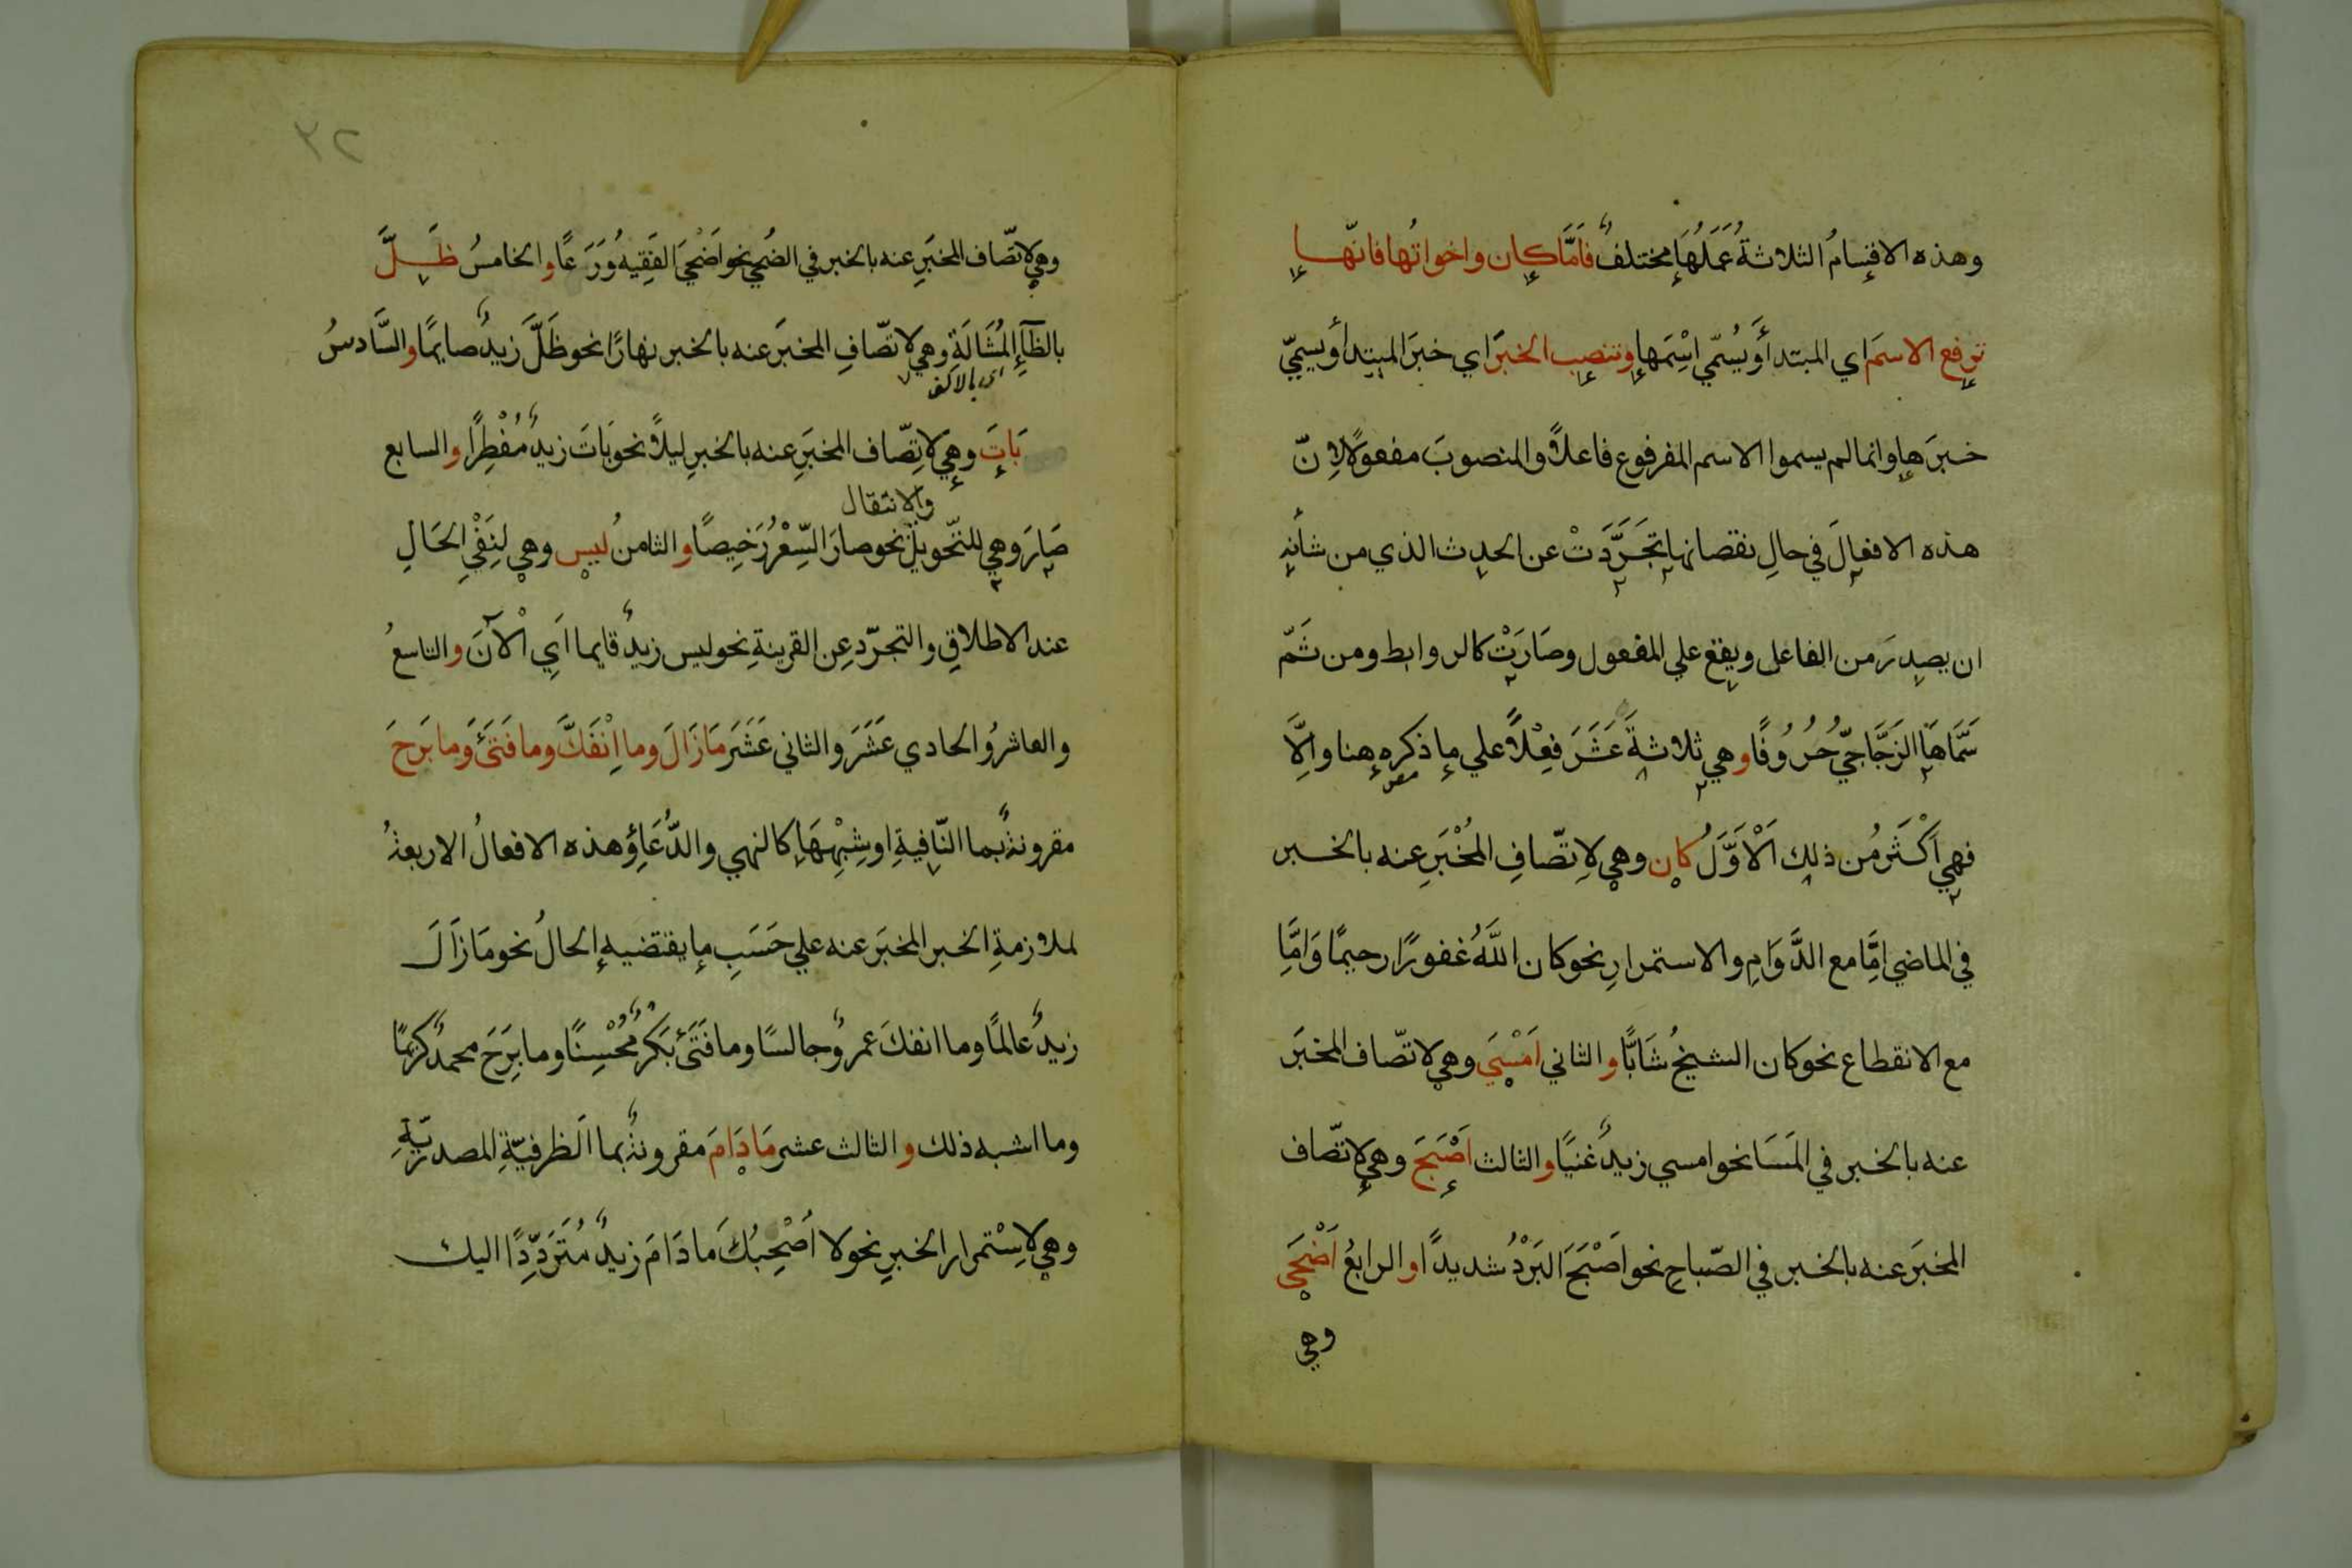 وهذه الاقسامُ الثلاثةُ عَمَلُهَا مختلفٌ فَاَمَّا كان واخواتُها فانّها
ترفع الاسمَ اي المبتدأ ويُسمّي اسْمَها وتنصب الخبَرَ اي خبرَ المبتدأ ويسمّي
خبرَها وانما لم يسموا الاسم المرفوع فاعلاً والمنصوبَ مفعولًا لِانّ
هذه الافعالَ في حالِ نقصانها تَجَرَّدَتْ عن الحدث الذي من شأنِه
ان يصدرَ من الفاعل ويقع علي المفعول وصَارَتْ كالروابط ومن ثَمَّ
سَمَّاهَا الزَجَّاجيّ حُرُوفًا وهي ثلاثةَ عَشَرَ فِعْلاً علي ما ذكره هنا واِلَّا
فهي اَكْثَرُ من ذلك اَلْاَوَّلُ كان وهي لِاتّصافِ المُخْبَرِ عنه بالخبر
في الماضي اِمَّا مع الدَّوَامِ والاستمرارِ نحو كان اللَّهُ غفورًا رحيمًا وَاِمَّا
مع الانقطاع نحو كان الشيخُ شَابًّا والثاني اَمْسَي وهي لاتّصاف المخبَر
عنه بالخبر في المَسَا نحو امسي زيدٌ غنيًا والثالث اَصْبَحَ وهي لاتّصاف
المخبَر عنه بالخبر في الصّباحِ نحو اَصْبَحَ البَرْدُ شديدًا والرابعُ اَضْحَي
وهي
٣٢
وهي لاتّصاف المخبَرِ عنه بالخبر في الضُحي نحو اَضْحَيَ الفَقِيهُ وَرَعًا والخامسُ ظَلَّ
بالظآءِ المُشَالَةِ وهي لاتّصافِ المخبَر عنه بالخبر نهارًا نحو ظَلَّ زيدٌ صايمًا والسَّادسُ
بَاتَ وهي لاتِّصاف المخبَرِ عنه بالخبرِ ليلاً نحو بَاتَ زيدٌ مُفْطِرًا والسابع
والانتقال
صَارَ وهي للتّحويل نحو صارَ السِّعْرُ رَخِيصًا والثامنُ ليس وهي لنَفْيِ الحَالِ
عند الاطلاقِ والتجرّد عن القرينةِ نحو ليس زيدٌ قايما اَيِ الْآنَ والتاسعُ
والعاشرُ والحادي عَشَرَ والثاني عَشَرَ مَازَالَ وما اِنْفَكَّ وما فَتَئَ وَما بَرَحَ
مقرونةً بما النّافيةِ او شِبْهِهَا كالنهي والدُّعَاءِ وهذه الافعالُ الاربعةُ
لملازمةِ الخبر المخبَر عنه علي حَسَبِ ما يقتضيه الحالُ نحو مَازَالَ
زيدٌ عالمًا وما انفكَ عمرٌو جالسًا وما فَتَئَ بَكْرٌ مُحْسِنًا وما بَرَحَ محمدٌ كريمًا
وما اشبه ذلك والثالث عشر مَا دَامَ مقرونةً بما الظرفيّةِ المصدريّةِ
وهي لاِسْتمرار الخبرِ نحو لا اَصْحَبُكَ ما دَامَ زيدٌ مُتَرَدِّدًا اليك